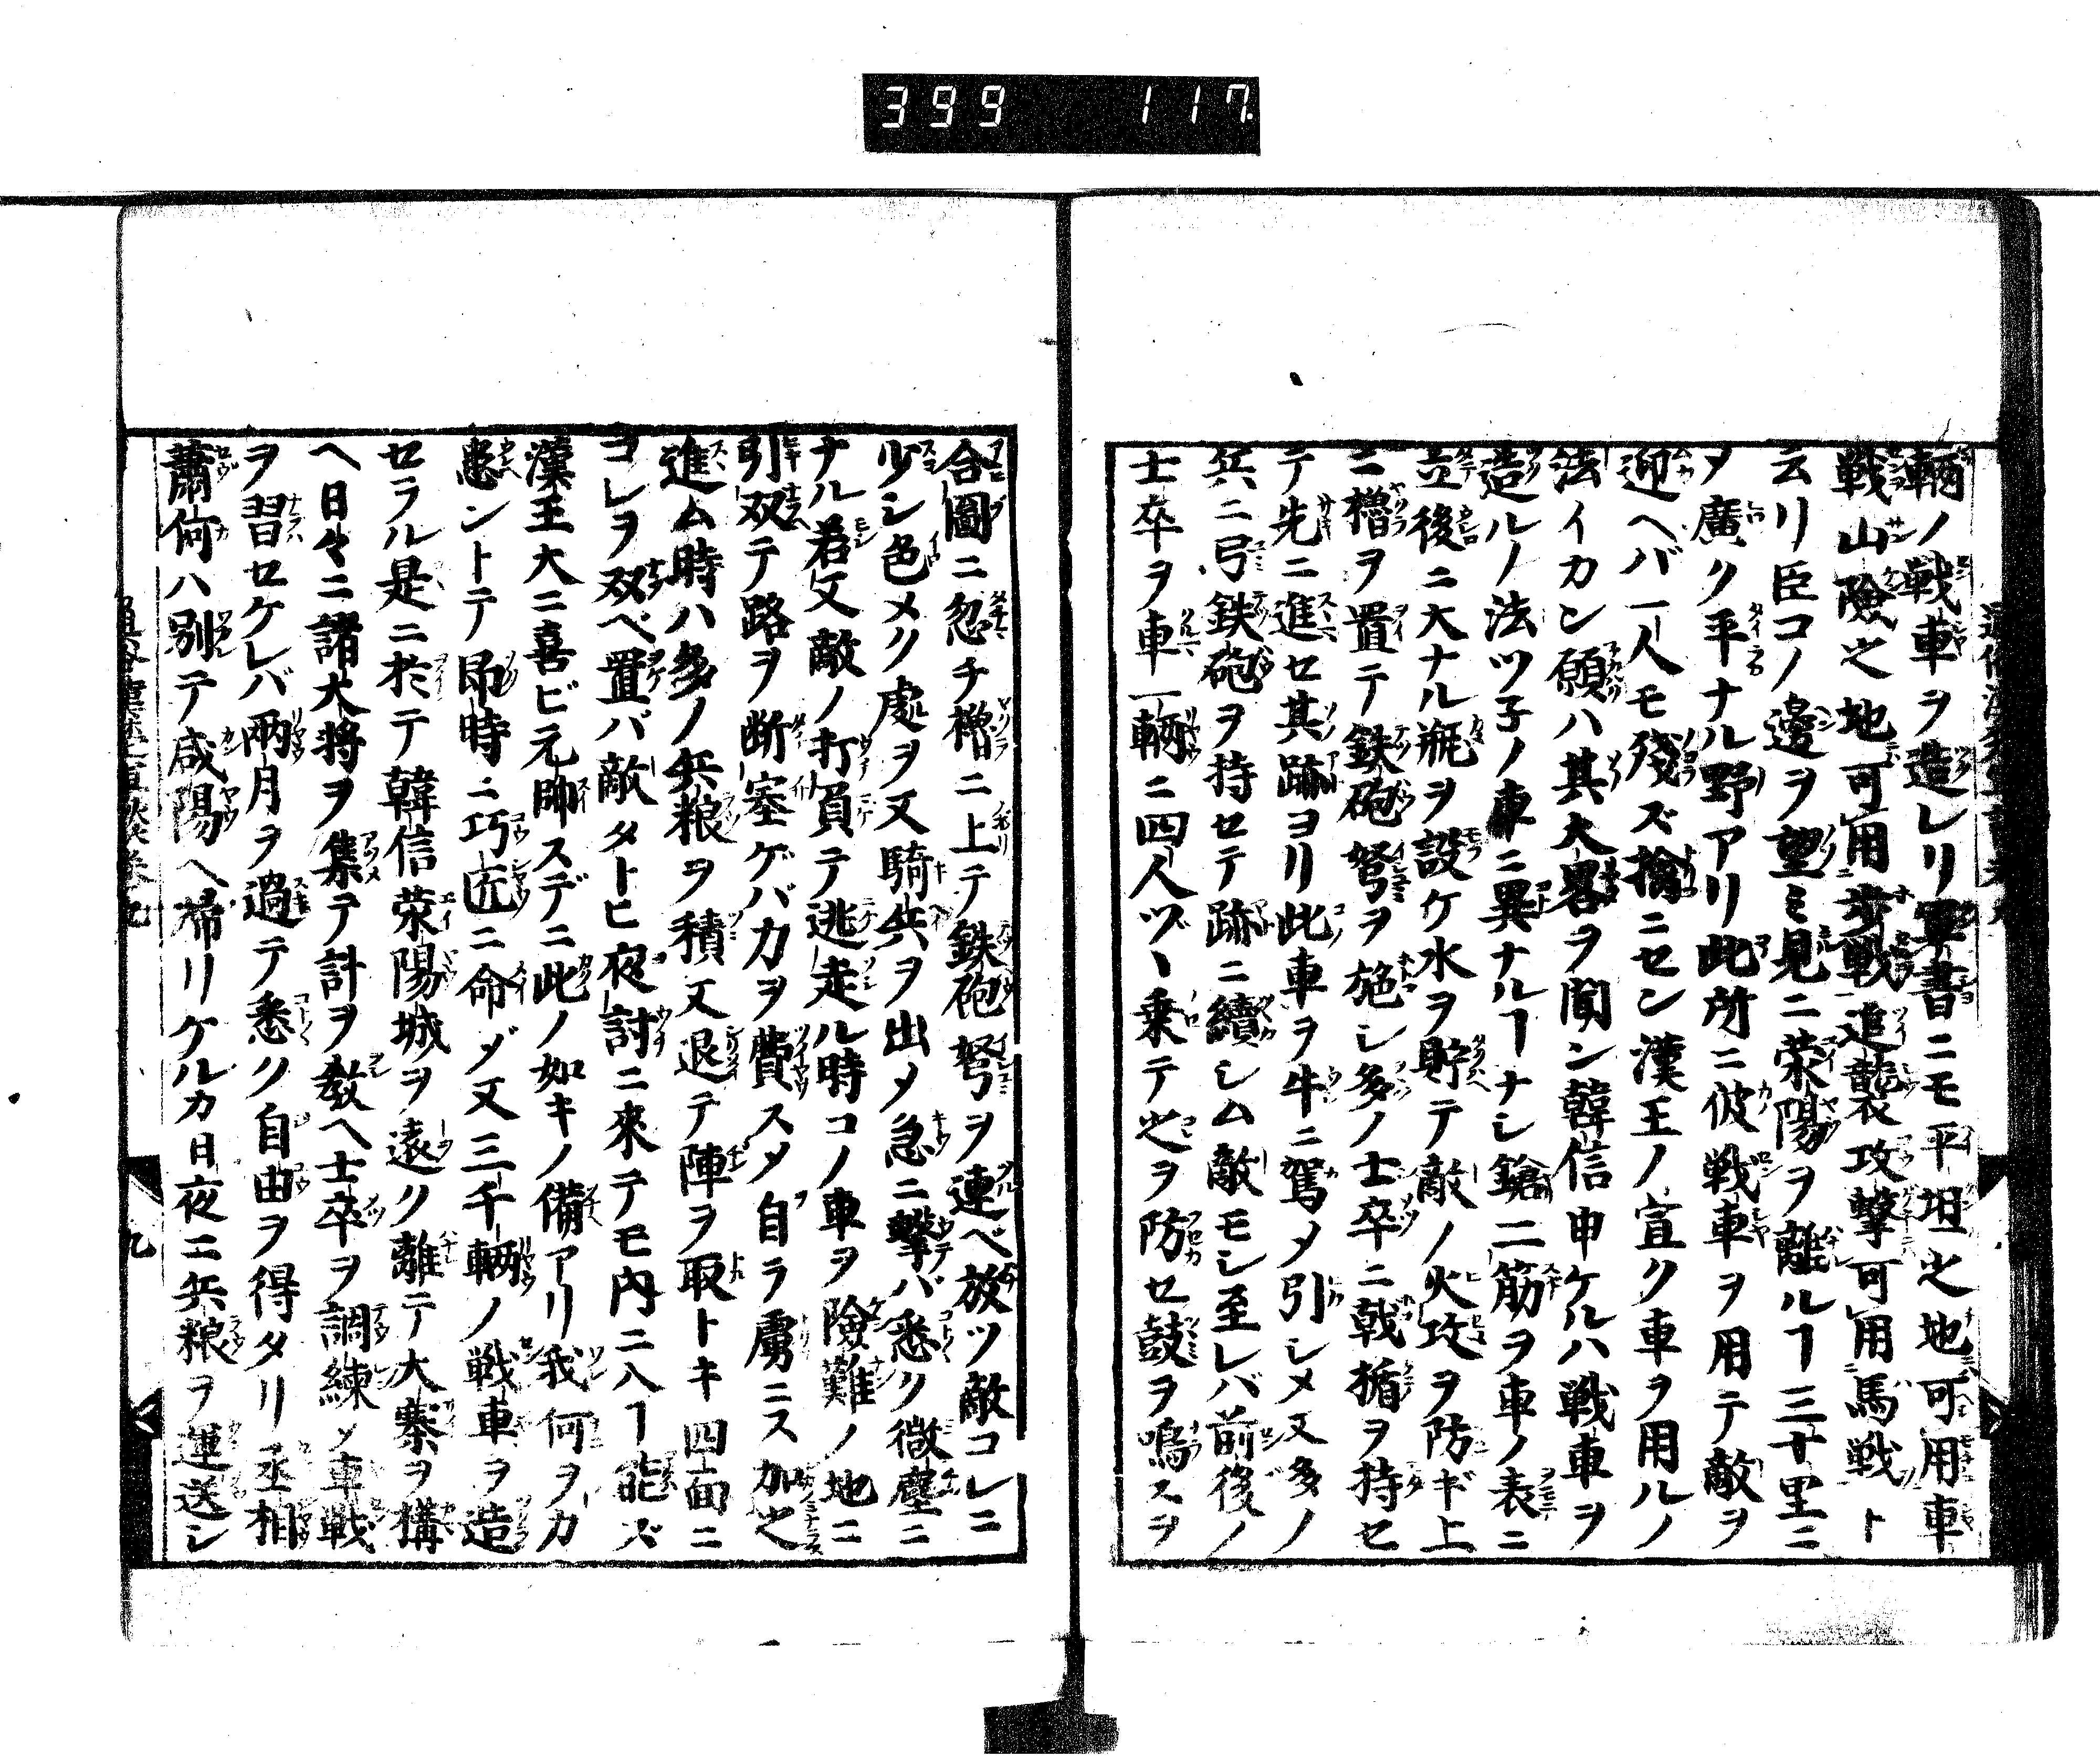 399 117
輌ノ戦車ヲ造レリ軍書ニモ平坦之地可用車
戦山險之地可用歩戦追襲攻撃可用馬戦ト
云リ臣コノ邊ヲ望ミ見ニ荥陽ヲ離ルヿ三十里ニ
ヌ廣ク平ナル野アリ此所ニ彼戦車ヲ用テ敵ヲ
迎ヘバ一人モ殘ズ擒ニセン漢王ノ宣ク車ヲ用ルノ
法イカン願ハ其大畧ヲ聞ン韓信申ケルハ戦車ヲ
造ルノ法ツ子ノ車ニ異ナルヿナシ鎗二筋ヲ車ノ表ニ
立後ニ大ナル瓶ヲ設ケ水ヲ貯テ敵ノ火攻ヲ防ギ上
ニ櫓ヲ置テ鉄砲弩ヲ施シ多ノ士卒ニ戟楯ヲ持セ
テ先ニ進セ其跡ヨリ此車ヲ牛ニ駕メ引シメ又多ノ
兵ニ弓鉄砲ヲ持セテ跡ニ續シム敵モシ至レバ前後ノ
士卒ヲ車一輌ニ四人ヅヽ乗テ之ヲ防セ鼓ヲ鳴スヲ
合圖ニ忽チ櫓ニ上テ鉄砲弩ヲ連ベ放ツ敵コレニ
少シ色メク處ヲ又騎兵ヲ出メ急ニ撃バ悉ク微塵ニ
ナル若又敵ノ打負テ逃走ル時コノ車ヲ險難ノ地ニ
引双テ路ヲ断塞ゲバ力ヲ費スメ自ラ虜ニス加之
進ム時ハ多ノ兵粮ヲ積又退テ陣ヲ取トキ四面ニ
コレヲ双ベ置バ敵タトヒ夜討ニ來テモ内ニ入ヿ能ズ
漢王大ニ喜ビ元帥スデニ此ノ如キノ備アリ我何ヲカ
患ントテ即時ニ巧匠ニ命ゾ又三千輌ノ戦車ヲ造
セラル是ニ於テ韓信荥陽城ヲ遠ク離テ大寨ヲ構
ヘ日々ニ諸大将ヲ集テ計ヲ教ヘ士卒ヲ調練ソ車戦
ヲ習セケレバ兩月ヲ過テ悉ク自由ヲ得タリ丞相
蕭何ハ別テ咸陽ヘ帰リケルカ日夜ニ兵粮ヲ運送シ
九